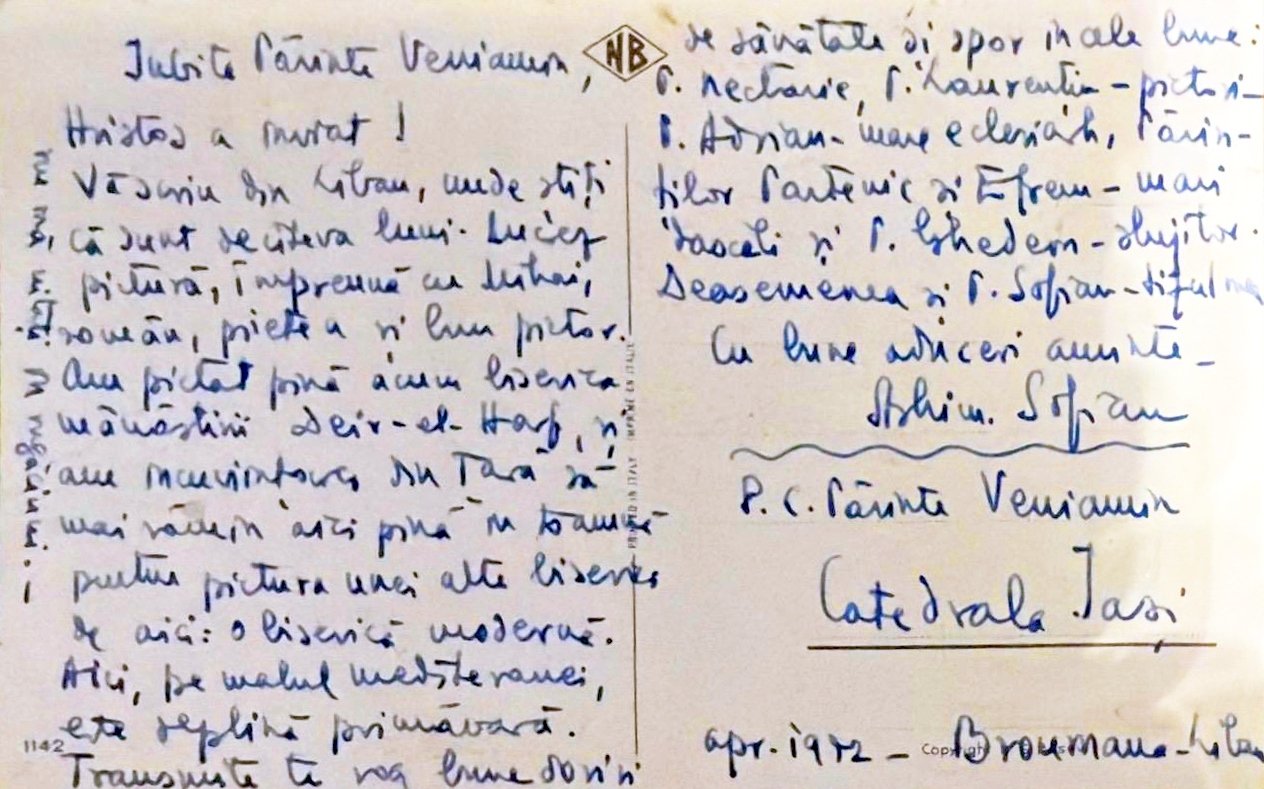 Iubite Părinte Veniamin,
Hristos a inviat!
Vă scriu din Liban, unde știți
că sunt de cîteva luni. Lucrez
pictură, împreună cu Mihai,
român, prieten și bun pictor.
Am pictat pînă acum biserica
mănăstirii Deir-el-Harf, și
am încuviințarea din Țară să
mai rămîn aici pînă în toamnă
pentru pictura unei alte biserici
de aici: o biserică modernă.
Aici, pe malul mediteranei,
este deplină primăvară.
Transmite te rog bune doriri
de sănătate și spor în cele bune:
P. Nectarie, P. Laurenție - pictori -
P. Adrian - mare ecleziarh, Părin-
ților Partenie și Efrem - mari
dascăli și P. Ghedeon - slujitor.
Deasemenea și P. Sofian -
Cu bune aduceri aminte -
Arhim. Sofian
P. C. Părinte Veniamin
Catedrala Iași
apr. 1972 - Broumana - Liban
NB
PRINTED IN ITALY - IMPRIMÉ EN ITALIE
1142
Copyright